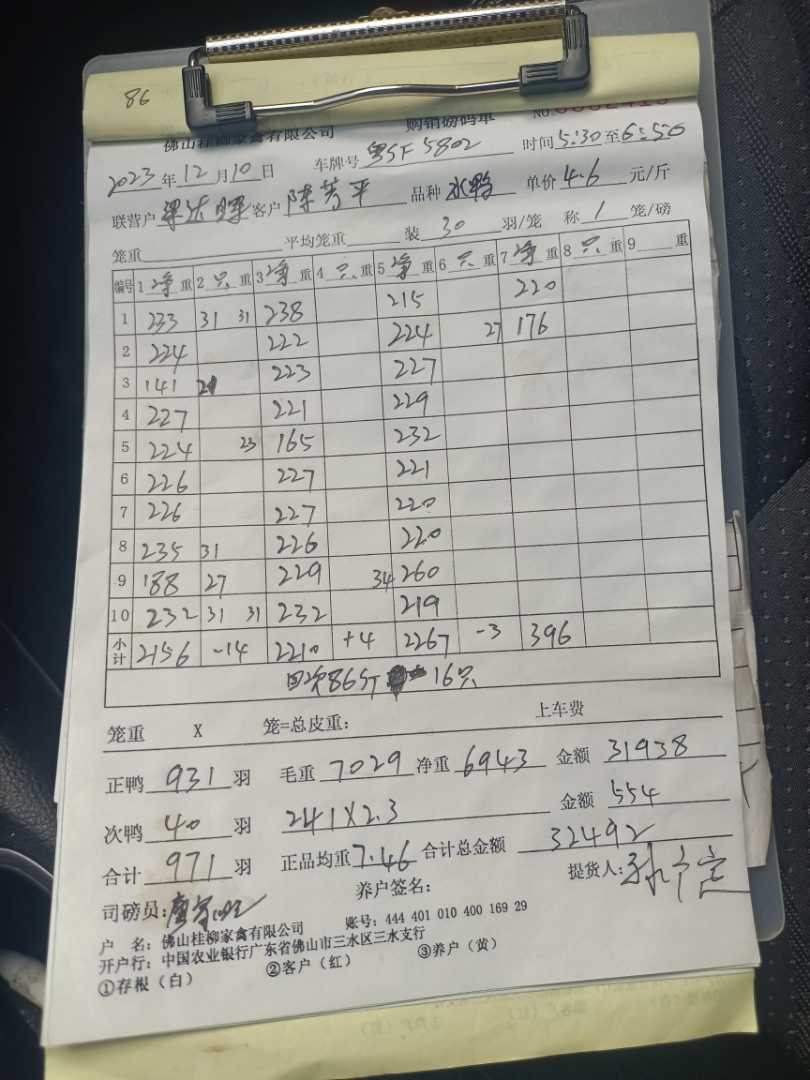 86
佛山桂柳家禽有限公司 购销磅码单 No.
2023年12月10日 车牌号粤SF5802 时间5:30至6:50
联营户梁达辉客户陈芳平 品种水鸭 单价4.6元/斤
笼重 平均笼重 装30羽/笼 称1笼/磅
编号 1净重 2只重 3净重 4只重 5净重 6只重 7净重 8只重 9 重
1 233 31 31 238 215 220
2 224 222 224 27 176
3 141 21 223 227
4 227 221 229
5 224 23 165 232
6 226 227 221
7 226 227 220
8 235 31 226 220
9 188 27 229 34 260
10 232 31 31 232 219
小计 2156 -14 2210 +4 2267 -3 396
回次86斤 16只
笼重 X 笼=总皮重: 上车费
正鸭931羽 毛重7029净重6943 金额31938
次鸭40羽 241X2.3 金额554
合计971羽 正品均重7.46合计总金额32492
司磅员: 养户签名: 提货人:
户 名: 佛山桂柳家禽有限公司 账号: 444 401 010 400 169 29
开户行: 中国农业银行广东省佛山市三水区三水支行
①存根(白) ②客户(红) ③养户(黄)